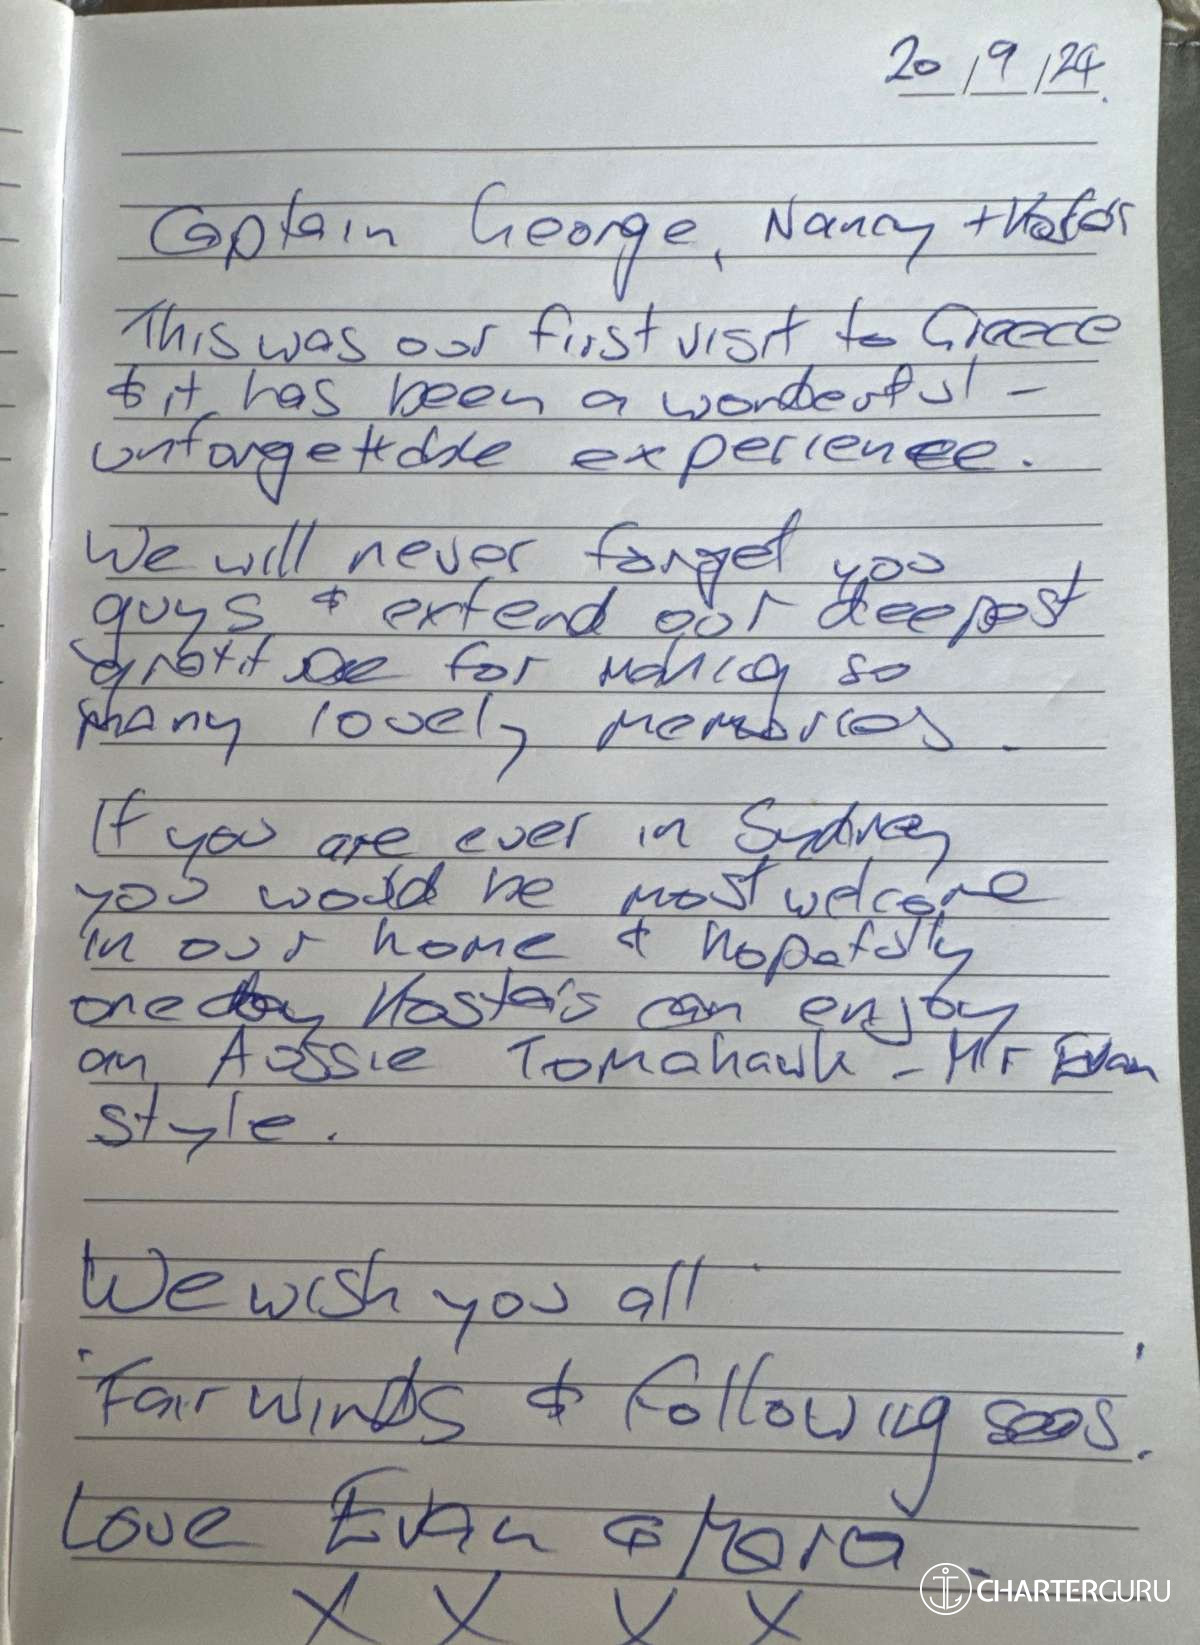 20/9/24.
Captain George, Nancy + Kostas
This was our first visit to Greece
& it has been a wonderful -
unforgettable experience.
We will never forget you
guys & extend our deepest
gratitude for making so
many lovely memories.
If you are ever in Sydney
you would be most welcome
in our home & hopefully
one day Kostas can enjoy
an Aussie Tomahawk - Mr Evan
style.
We wish you all
'Fair winds & following seas.'
Love Evan & Mara.
X X X X
CHARTERGURU